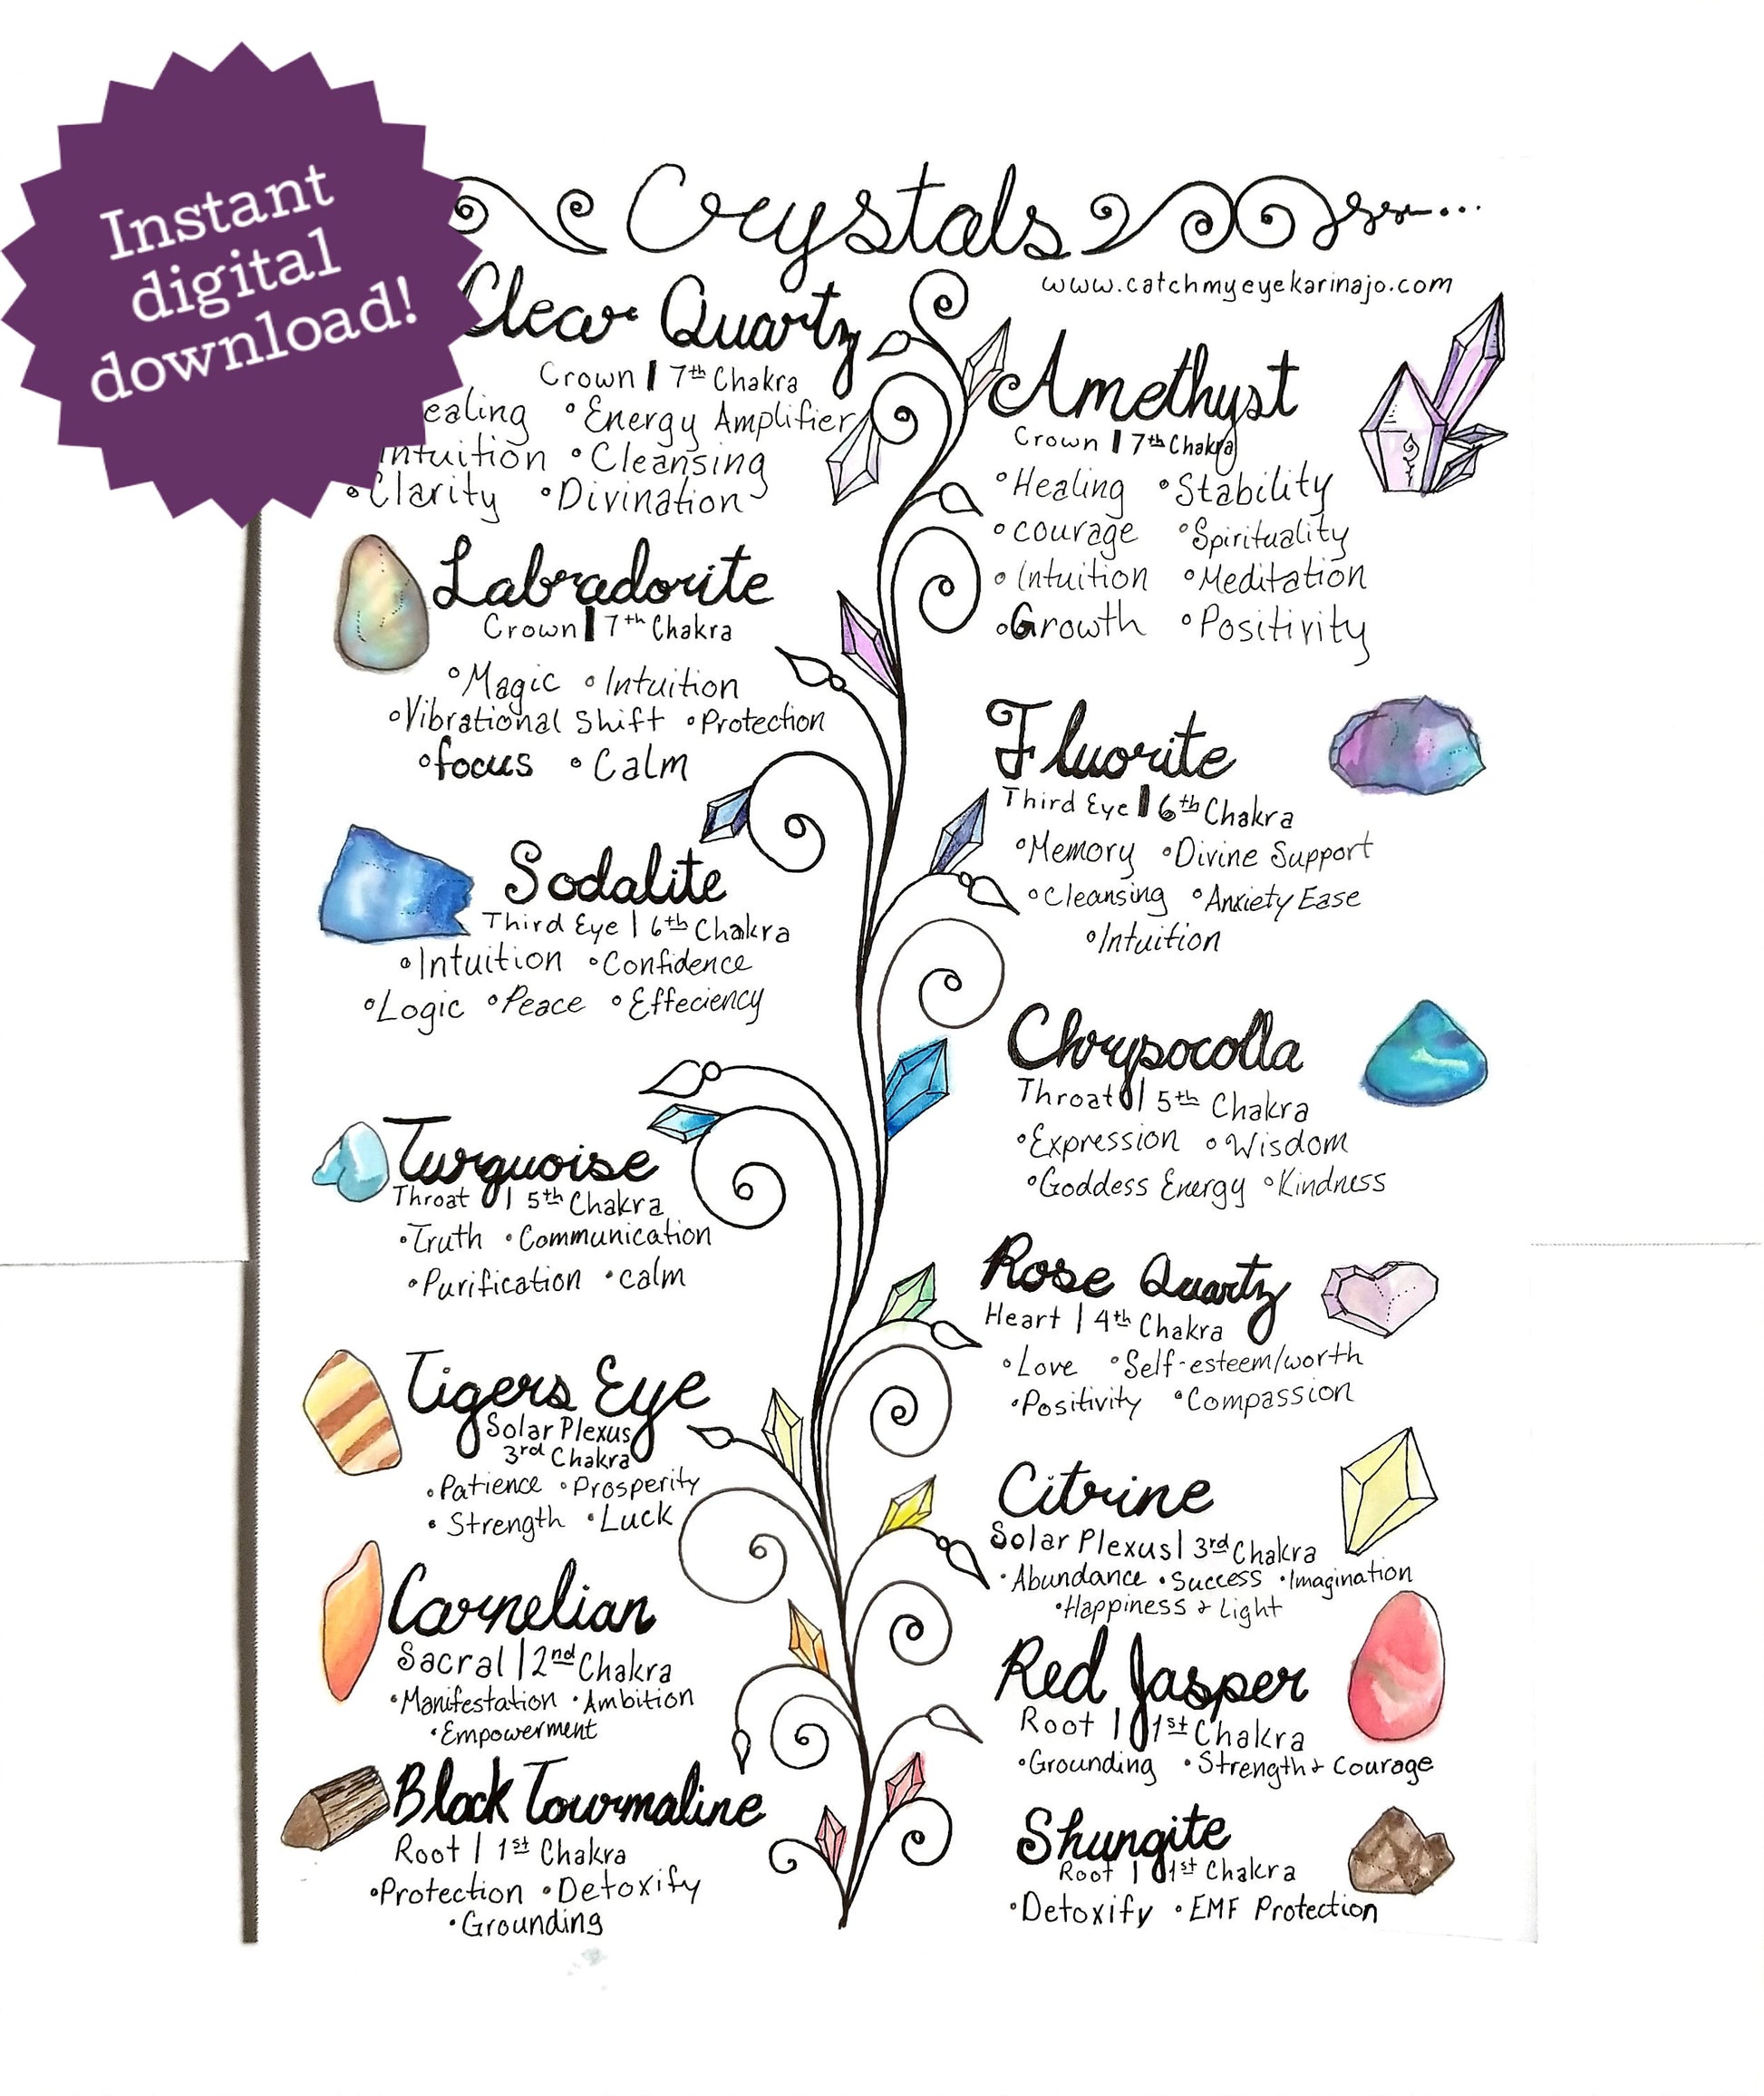 Instant
digital
download!
Crystals
www.catchmyeyekarinajo.com
Clear Quartz
Crown | 7th Chakra
ealing °Energy Amplifier
Intuition °Cleansing
°Clarity °Divination
Labradorite
Crown | 7th Chakra
°Magic °Intuition
°Vibrational Shift °Protection
°focus °Calm
Sodalite
Third Eye | 6th Chakra
°Intuition °Confidence
°Logic °Peace °Effeciency
Turquoise
Throat | 5th Chakra
•Truth •Communication
•Purification •calm
Tigers Eye
Solar Plexus
3rd Chakra
•Patience •Prosperity
•Strength •Luck
Carnelian
Sacral | 2nd Chakra
•Manifestation •Ambition
•Empowerment
Black Tourmaline
Root | 1st Chakra
•Protection •Detoxify
•Grounding
Amethyst
Crown | 7th Chakra
°Healing °Stability
°courage °Spirituality
°Intuition °Meditation
°Growth °Positivity
Fluorite
Third Eye | 6th Chakra
°Memory °Divine Support
°Cleansing °Anxiety Ease
°Intuition
Chrysocolla
Throat | 5th Chakra
°Expression °Wisdom
°Goddess Energy °Kindness
Rose Quartz
Heart | 4th Chakra
°Love °Self-esteem/worth
°Positivity °Compassion
Citrine
Solar Plexus | 3rd Chakra
•Abundance •Success •Imagination
•Happiness & Light
Red Jasper
Root | 1st Chakra
°Grounding •Strength & Courage
Shungite
Root | 1st Chakra
°Detoxify °EMF Protection